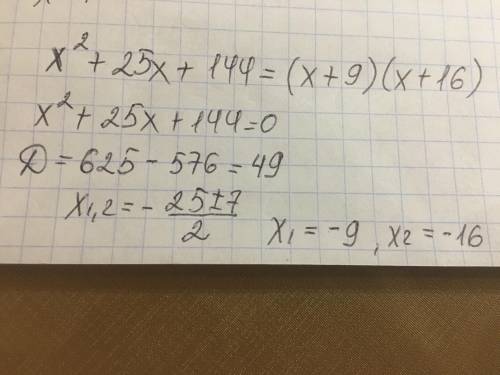 x² + 25x + 144 = (x+9)(x+16)
x² + 25x + 144 = 0
Д = 625 - 576 = 49
x₁,₂ = - 25±7 / 2
x₁ = -9 , x₂ = -16